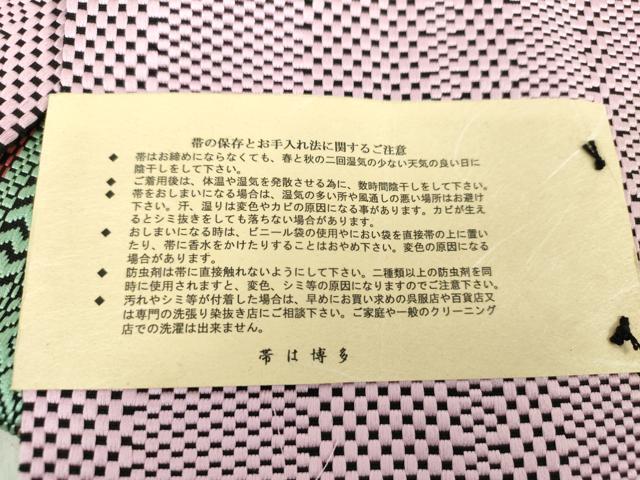 帯の保存とお手入れ法に関するご注意
◆ 帯はお締めにならなくても、春と秋の二回湿気の少ない天気の良い日に
陰干しをして下さい。
◆ ご着用後は、体温や湿気を発散させる為に、数時間陰干しをして下さい。
◆ 帯をおしまいになる場合は、湿気の多い所や風通しの悪い場所はお避け
下さい。汗、湿りは変色やカビの原因になる事があります。カビが生え
るとシミ抜きをしても落ちない場合があります。
◆ おしまいになる時は、ビニール袋の使用やにおい袋を直接帯の上に置い
たり、帯に香水をかけたりすることはおやめ下さい。変色の原因になる
場合があります。
◆ 防虫剤は帯に直接触れないようにして下さい。二種類以上の防虫剤を同
時に使用されますと、変色、シミ等の原因になりますのでご注意下さい。
◆ 汚れやシミ等が付着した場合は、早めにお買い求めの呉服店や百貨店又
は専門の洗張り染抜き店にご相談下さい。ご家庭や一般のクリーニング
店での洗濯は出来ません。
帯は博多